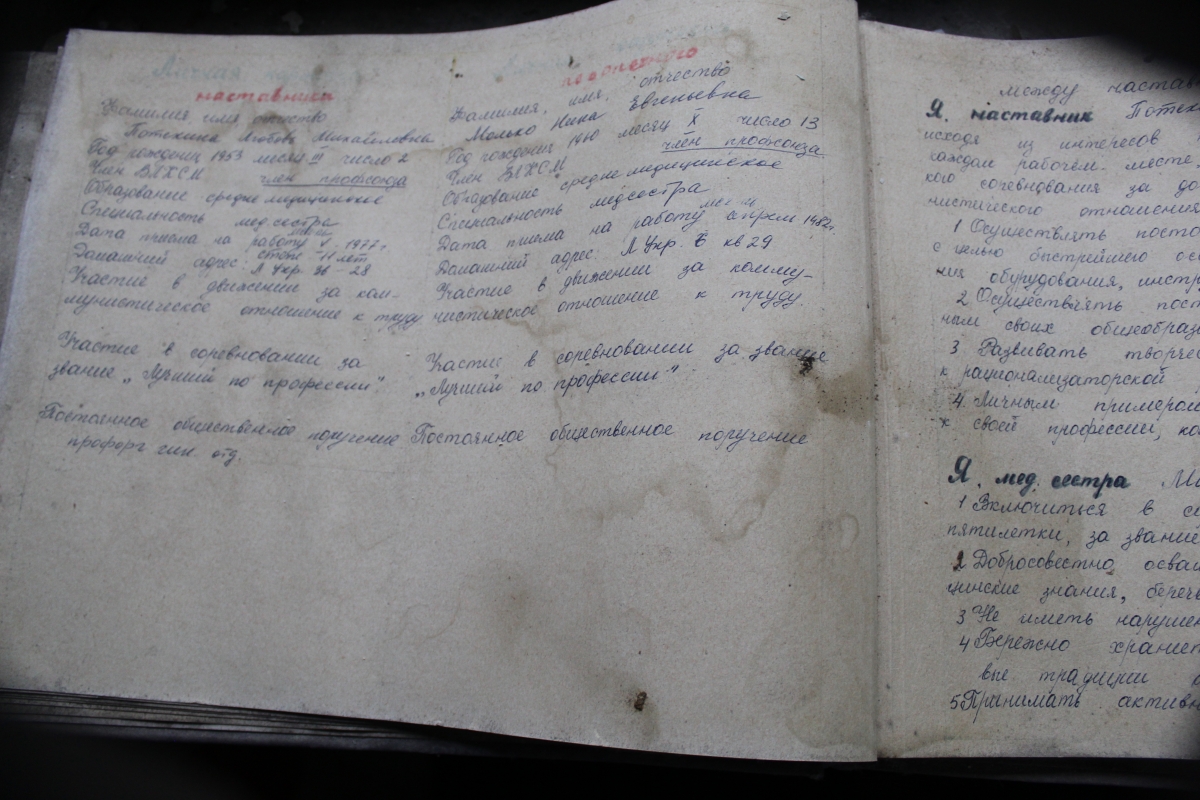 Личная
наставника
Фамилия имя отчество
Потехина Любовь Михайловна
Год рождения 1953 месяц III число 2
Член ВЛКСМ член профсоюза
Образование средне медицинское
Специальность медсестра
Дата приема на работу V - 1977 г
стаж - 11 лет
Домашний адрес: Л Укр. 36 - 28
Участие в движении за ком-
мунистическое отношение к труду
Участие в соревновании за
звание „Лучший по профессии"
Постоянное общественное поручение
профорг гин. отд.
подопечного
Фамилия, имя, отчество
Молько Нина Евгеньевна
Год рождения 1910 месяц X число 13
Член ВЛКСМ член профсоюза
Образование средне медицинское
Специальность медсестра
Дата приема на работу апрель 1982г.
Домашний адрес: Л Укр. 6 кв 29
Участие в движении за комму-
нистическое отношение к труду
Участие в соревновании за звание
„Лучший по профессии"
Постоянное общественное поручение
между
Я, наставник
исходя из интересов
каждом рабочем месте,
кого соревнования за
нистического отношения
1 Осуществлять
с целью быстрейшего
ния оборудования,
2. Осуществлять
ным своих
3 Развивать
к рационализаторской
4. Личным примером
к своей профессии,
Я, мед. сестра
1 Включиться в
пятилетки, за звание
2 Добросовестно
цинские знания,
3 Не иметь
4 Бережно
вые традиции
5 Принимать